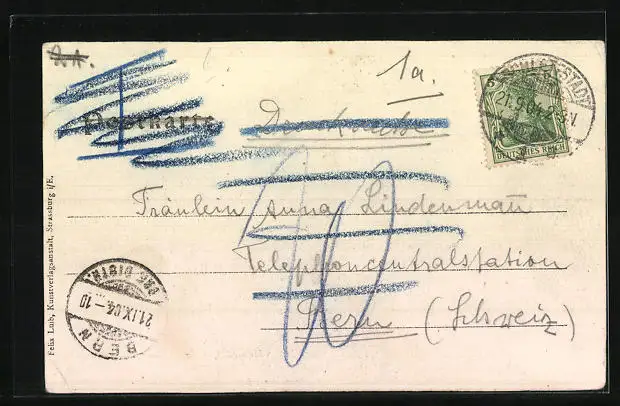 1a.
Postkarte
Drucksache
Fräulein Anna Lindenmau
Telephoncentralstation
Bern (Schweiz)
DEUTSCHES REICH
5
SCHLETTSTADT
21.9.04
BERN
21.IX.04.-10
BRF. DISTR.
Felix Luib, Kunstverlagsanstalt, Strassburg i/E.